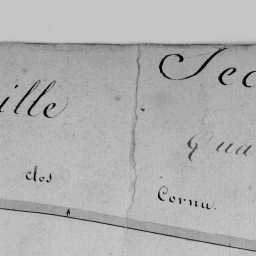 Sec
ille
Qua
clos
Cornu.